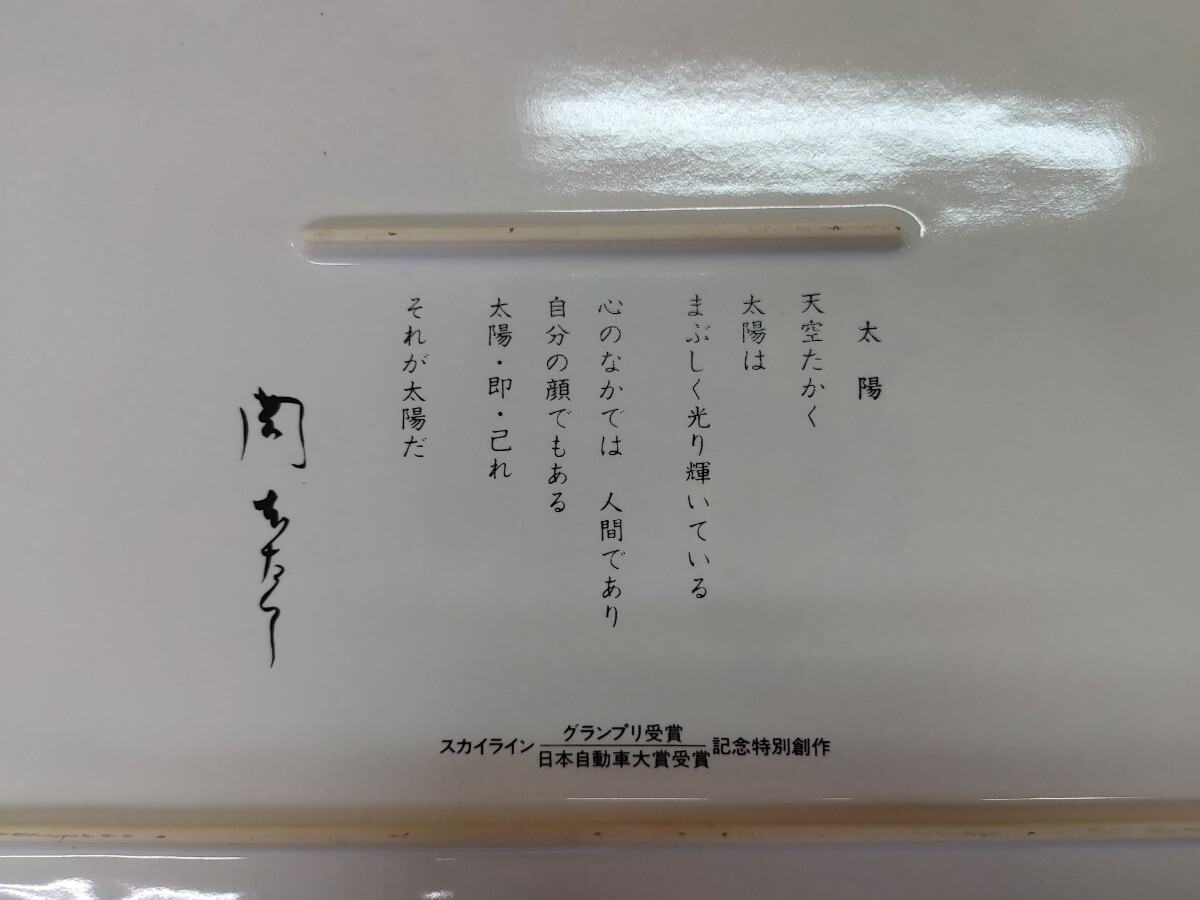 太陽
天空たかく
太陽は
まぶしく光り輝いている
心のなかでは　人間であり
自分の顔でもある
太陽・即・己れ
それが太陽だ
スカイライン グランプリ受賞 日本自動車大賞受賞 記念特別創作